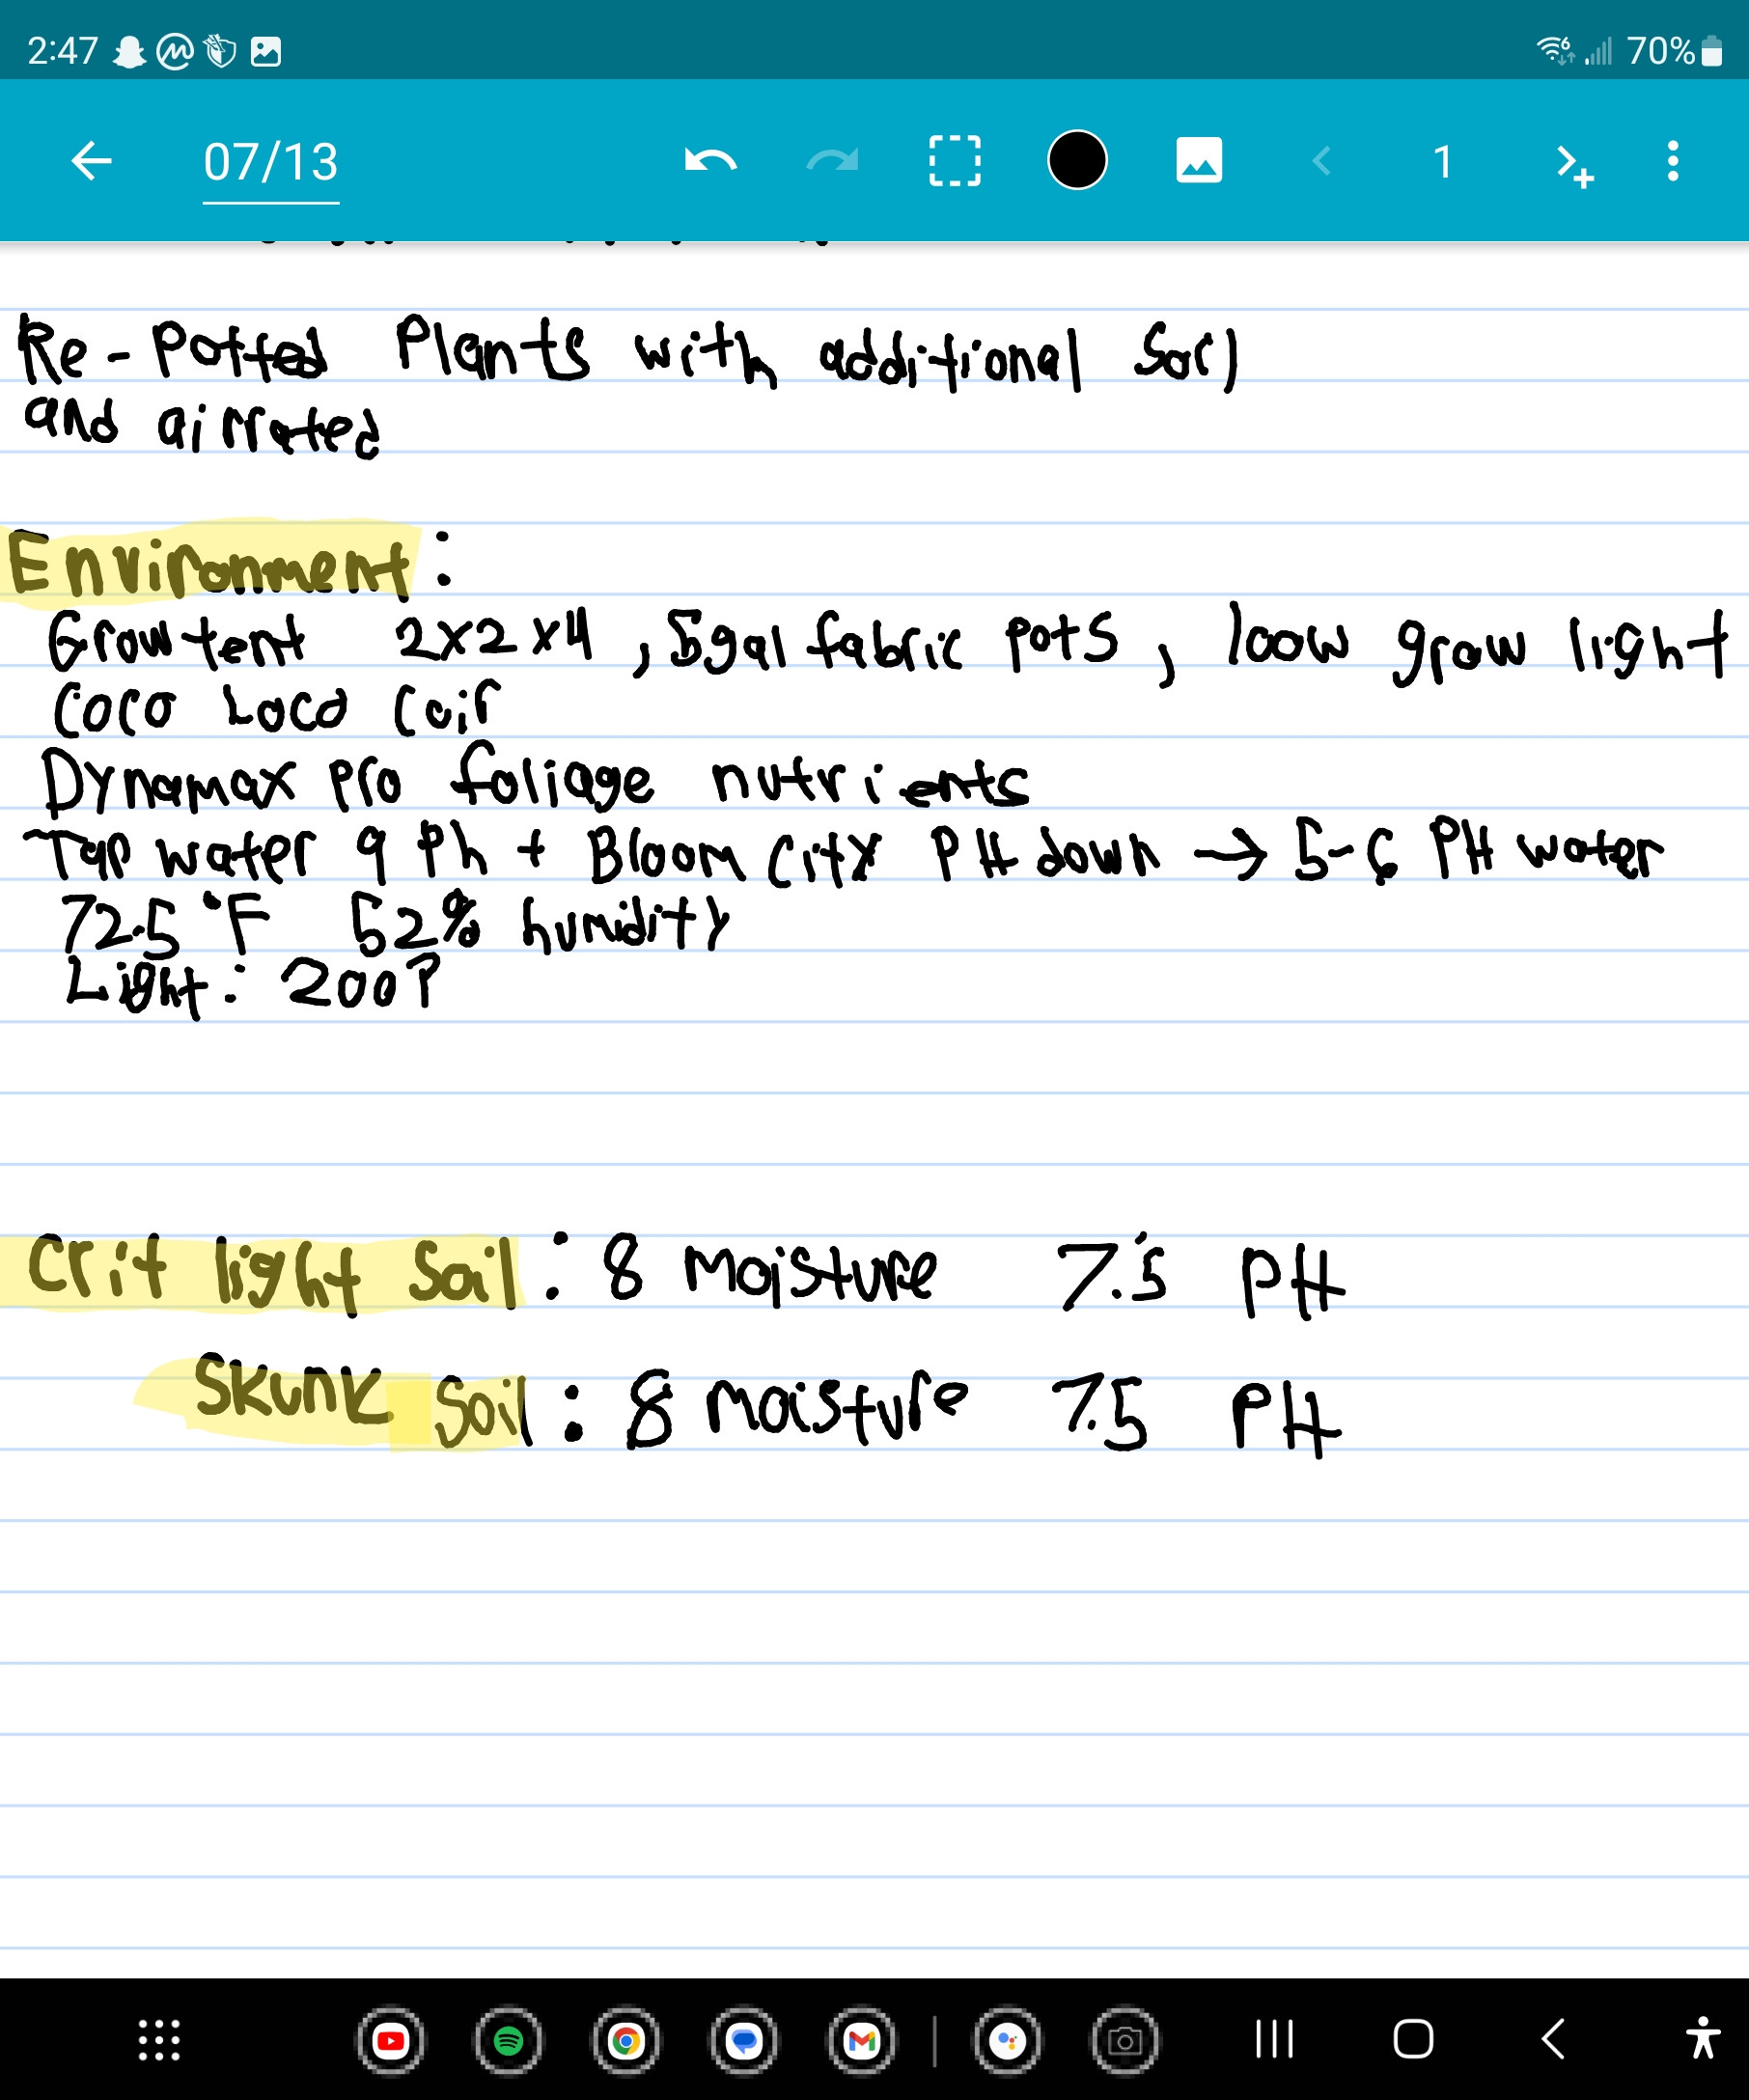 2:47
70%
07/13
1
Re-Potted Plants with additional Soil
and airrated
Environment:
Grow tent 2x2x4, 5gal fabric pots, 100w grow light
Coco Loco Coir
Dynamax Pro foliage nutrients
Tap water 9 Ph + Bloom City PH down → 5-6 PH water
72.5 °F 52% humidity
Light: 200?
Crit light Soil: 8 Moisture 7.5 PH
Skunk Soil: 8 Moisture 7.5 PH